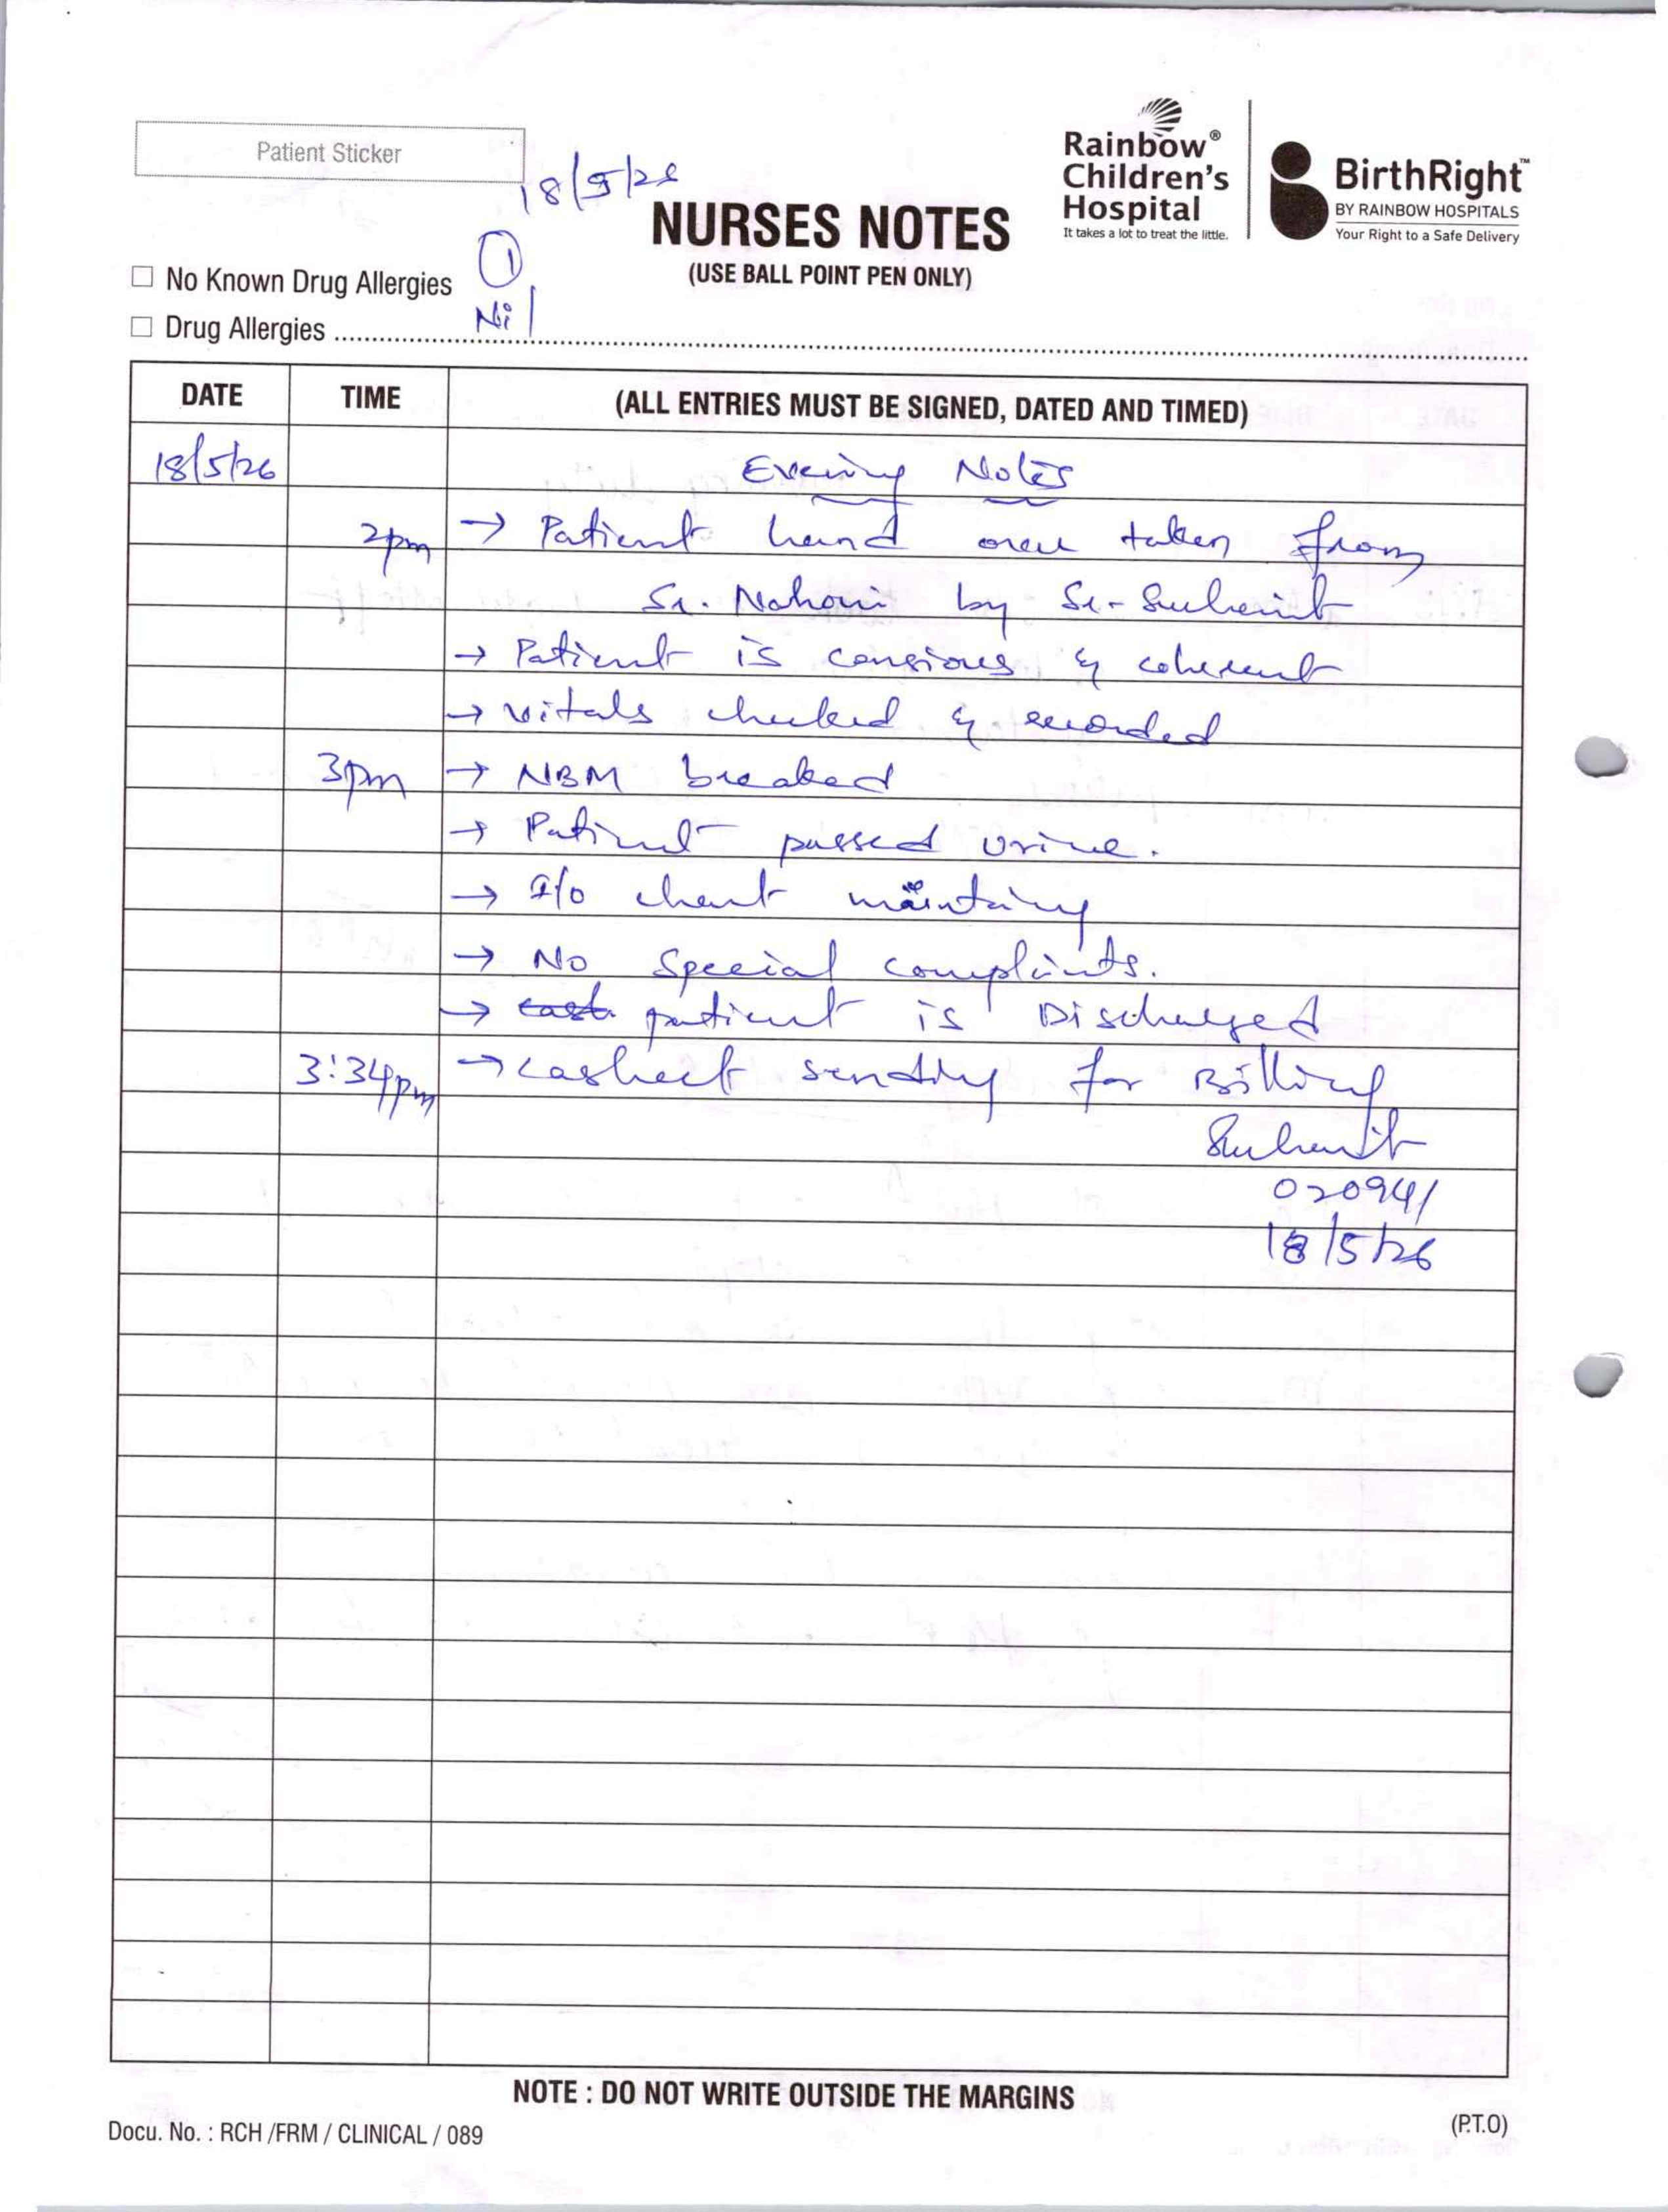 Patient Sticker
18/5/26
Rainbow®
Children's
Hospital
It takes a lot to treat the little.
BirthRight™
BY RAINBOW HOSPITALS
Your Right to a Safe Delivery
NURSES NOTES
(USE BALL POINT PEN ONLY)
No Known Drug Allergies 1
Drug Allergies Nil
DATE TIME (ALL ENTRIES MUST BE SIGNED, DATED AND TIMED)
18/5/26 Evening Notes
2pm → Patient hand over taken from
Sr. by Sr.
→ Patient is consious & coherent
→ vitals checked & recorded
3pm → NBM breaked
→ Patient passed urine.
→ I/o chart maintaing
→ No Special complaints.
→ patient is Discharged
3:34pm → casheet sending for Billing
020941
18/5/26
NOTE : DO NOT WRITE OUTSIDE THE MARGINS
Docu. No. : RCH /FRM / CLINICAL / 089
(P.T.O)